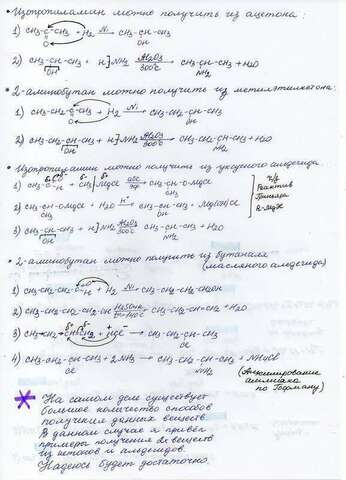 • Изопропиламин можно получить из ацетона:
1) CH3-C-CH3 + H2 Ni → CH3-CH-CH3
O OH
2) CH3-CH-CH3 + H]NH2 Al2O3 300°C → CH3-CH-CH3 + H2O
OH NH2
• 2-аминобутан можно получить из метилэтилкетона:
1) CH3-CH2-C-CH3 + H2 Ni → CH3-CH2-CH-CH3
O OH
2) CH3-CH2-CH-CH3 + H]NH2 Al2O3 300°C → CH3-CH2-CH-CH3 + H2O
OH NH2
• Изопропиламин можно получить из уксусного альдегида:
1) CH3-C-H + CH3 MgCl абс эф → CH3-CH-O-MgCl
O CH3
2) CH3-CH-O-MgCl + HOH H+ → CH3-CH-CH3 + Mg(OH)Cl
CH3 OH
ч/з Реактив Гриньяра R-MgX
3) CH3-CH-CH3 + H]NH2 Al2O3 300°C → CH3-CH-CH3 + H2O
OH NH2
• 2-аминобутан можно получить из бутаналя
(масляного альдегида)
1) CH3-CH2-CH2-C-H + H2 Ni → CH3-CH2-CH2-CH2OH
O
2) CH3-CH2-CH2-CH2-OH H2SO4к → CH3-CH2-CH=CH2 + H2O
3) CH3-CH2-CH=CH2 + HCl → CH3-CH2-CH-CH3
Cl
4) CH3-CH2-CH-CH3 + 2NH3 → CH3-CH2-CH-CH3 + NH4Cl
Cl NH2
(Алкилирование
аммиака
по Гофману)
* На самом деле существует
большое количество способов
получения данных веществ.
В данном случае я привёл
примеры получения 2х веществ
из кетонов и альдегидов.
Надеюсь будет достаточно.